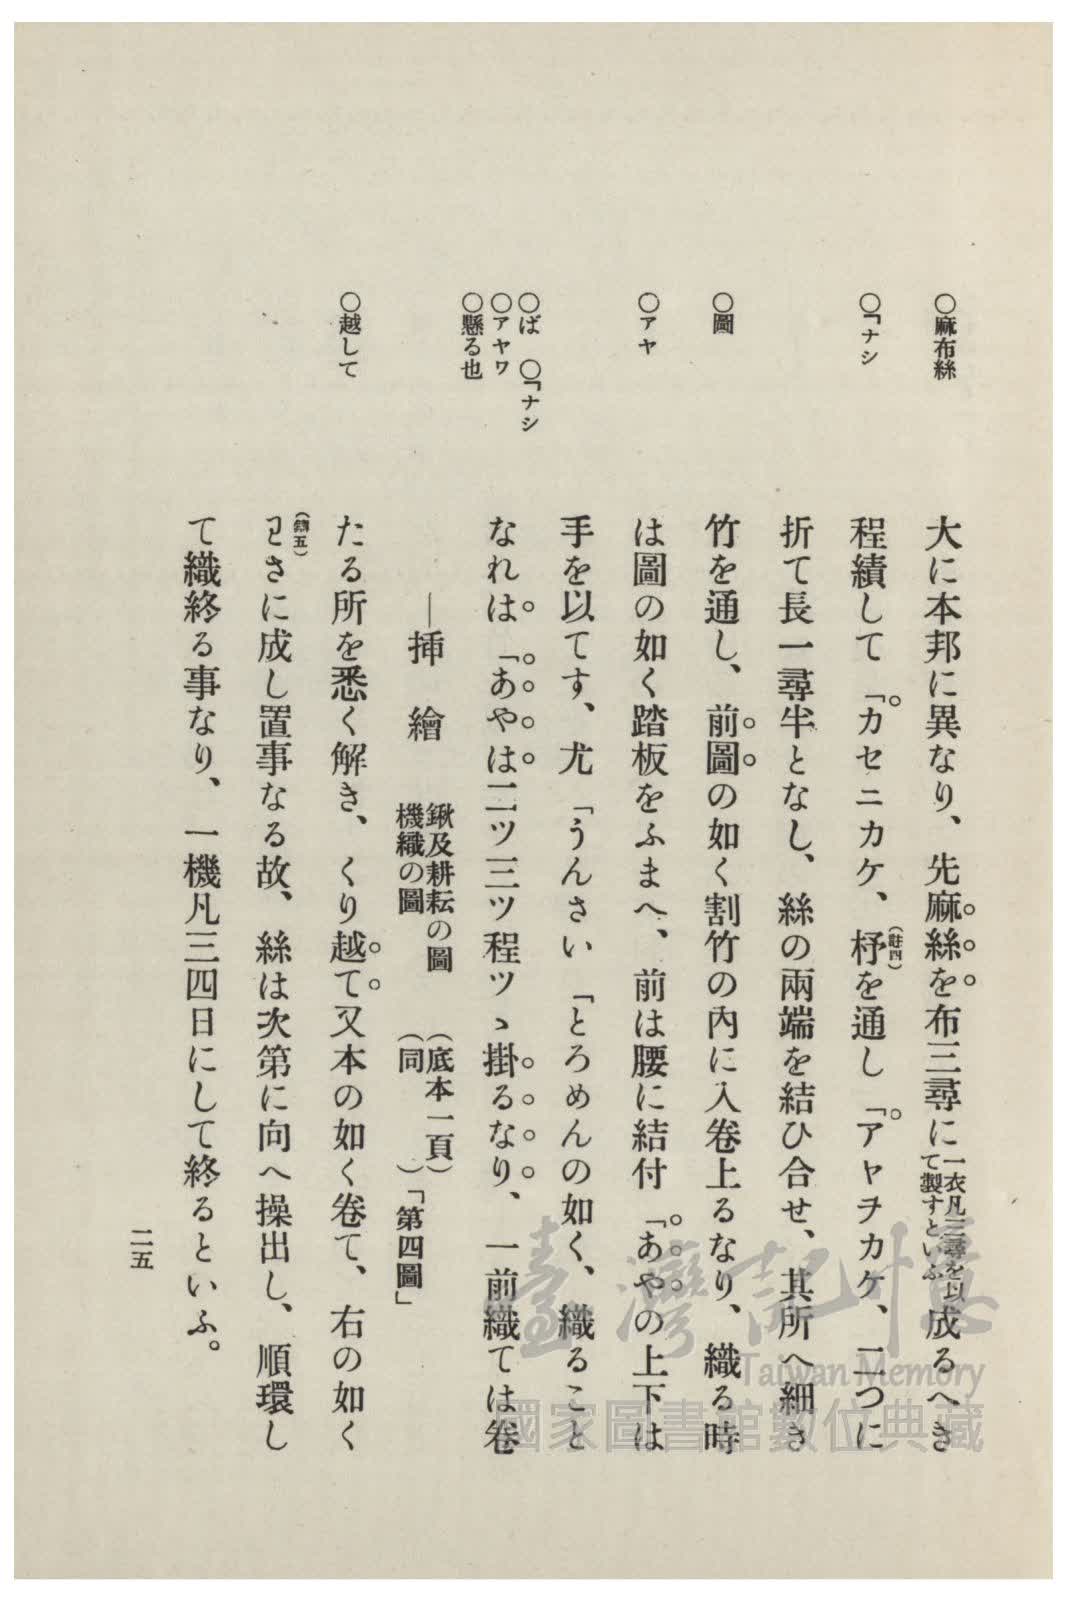 ○麻布絲
○「ナシ
○圖
○アヤ
○ば　○「ナシ
○アヤワ
○懸る也
○越して
大に本邦に異なり、先麻絲を布三尋に一衣凡三尋を以て製すといふ成るへき
程績して「カセニカケ、杼(註四)を通し「アヤヲカケ、二つに
折て長一尋半となし、絲の兩端を結ひ合せ、其所へ細き
竹を通し、前圖の如く割竹の內に入卷上るなり、織る時
は圖の如く踏板をふまへ、前は腰に結付「あやの上下は
手を以てす、尤「うんさい「とろめんの如く、織ること
なれは「あやは二ツ三ツ程ツゝ掛るなり、一前織ては卷
―挿繪　鍬及耕耘の圖　(底本一頁)
機織の圖　(同　)「第四圖」
たる所を悉く解き、くり越て又本の如く卷て、右の如く
(註五)さに成し置事なる故、絲は次第に向へ操出し、順環し
て織終る事なり、一機凡三四日にして終るといふ。
二五
臺灣記憶
Taiwan Memory
國家圖書館數位典藏